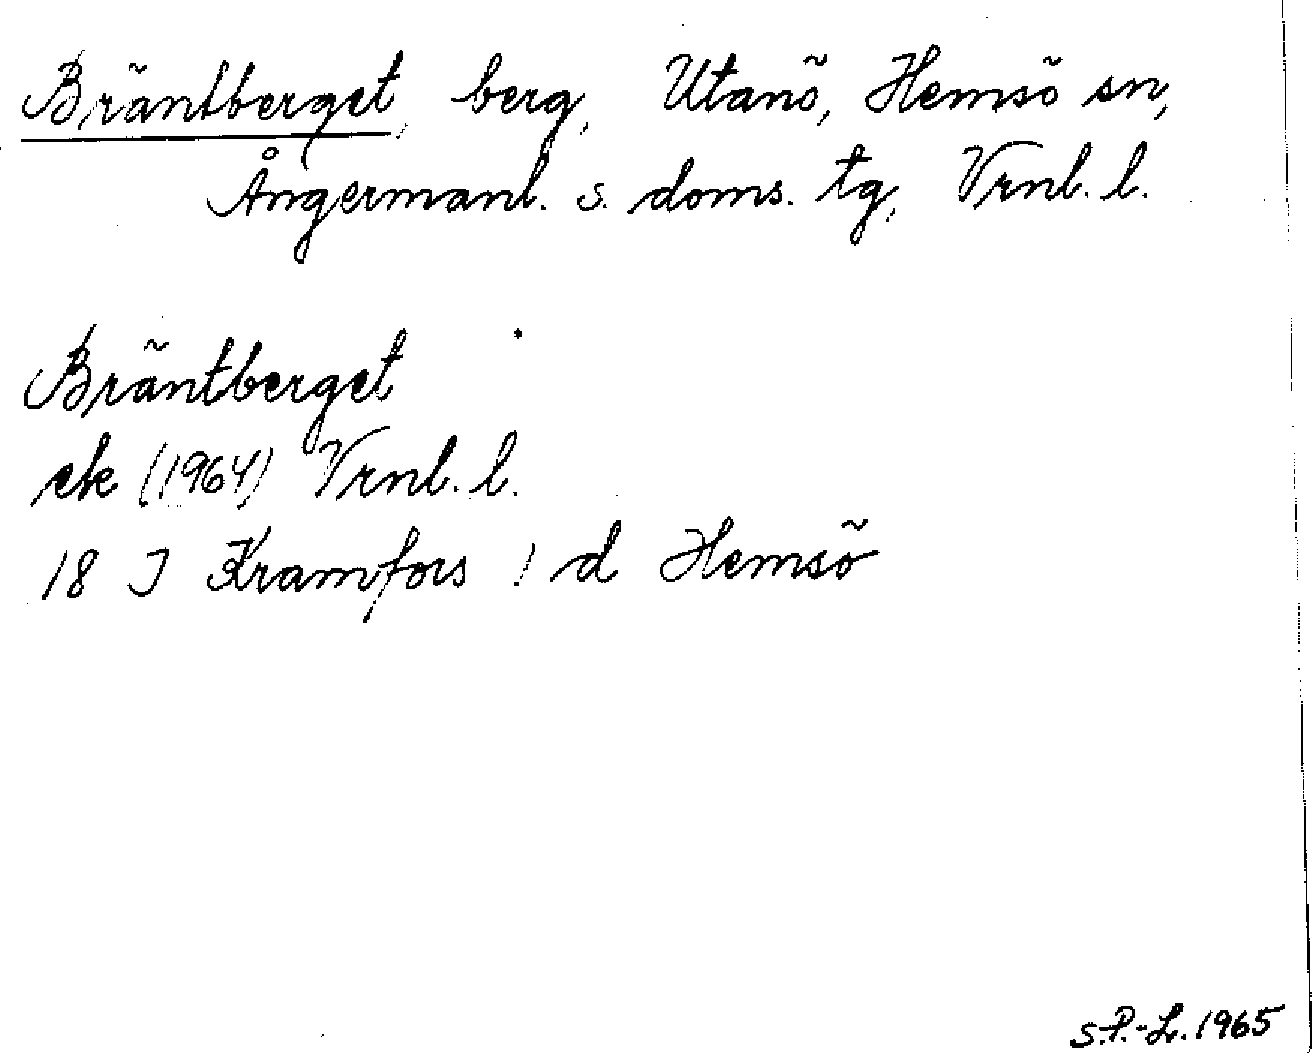 Bräntberget, berg, Utanö, Hemsö sn,
Ångermanl. s. doms. tg, Vrnl. l.
Bräntberget
ek (1964) Vrnl. l.
18 J Kramfors 1 d Hemsö
S.P.-L. 1965